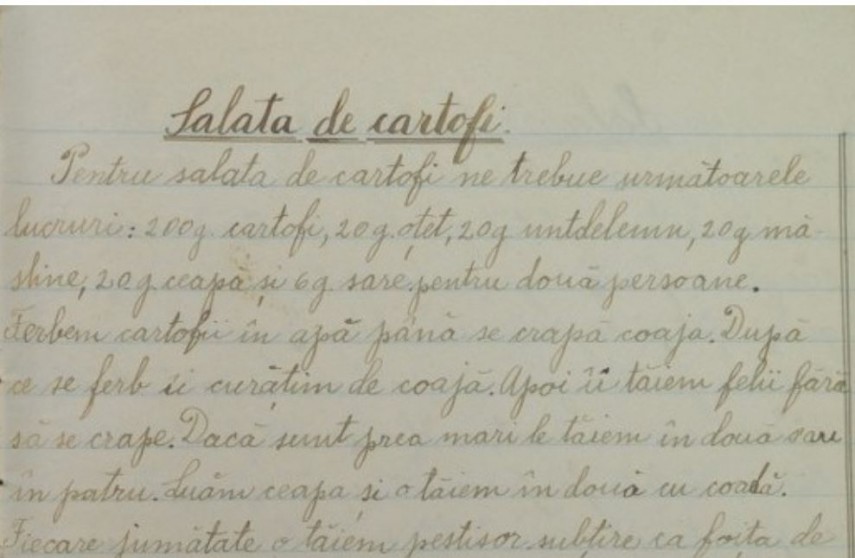 Salata de cartofi.
Pentru salata de cartofi ne trebue următoarele
lucruri: 200g cartofi, 20g. oțet, 20g untdelemn, 20g mă-
sline, 20g ceapă și 6g sare pentru două persoane.
Ferbem cartofii în apă până se crapă coaja. După
ce se ferb îi curățim de coajă. Apoi îi tăiem felii fără
să se crape. Dacă sunt prea mari le tăiem în două sau
în patru. Luăm ceapa și o tăiem în două cu coadă.
Fiecare jumătate o tăiem peștișor subțire ca foița de